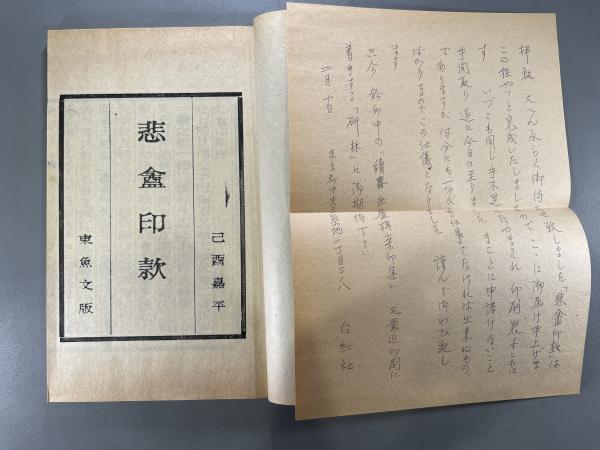 己酉嘉平
悲盦印款
東魚文版
拝啓 大へん永らく御待たせ致しました「悲盦印款」は
この程やっと完成いたしましたので、ここに御届け申上げま
す いつでも同じ手不足になやまされ 印刷製本ともに
手間取り遂に今日に至りました まことに申譯けないこと
でありますが 何分にも 仕事でなければ出来ぬもの
ばかりなのでこの仕儀となりました 謹んでおわび致し
ます
只今 鈐印中の「續 印集」 又最近印刷に
着手する「 林」に御期待下さい
二月十日 東京都中央 築地二丁目三ノ八 白紅社